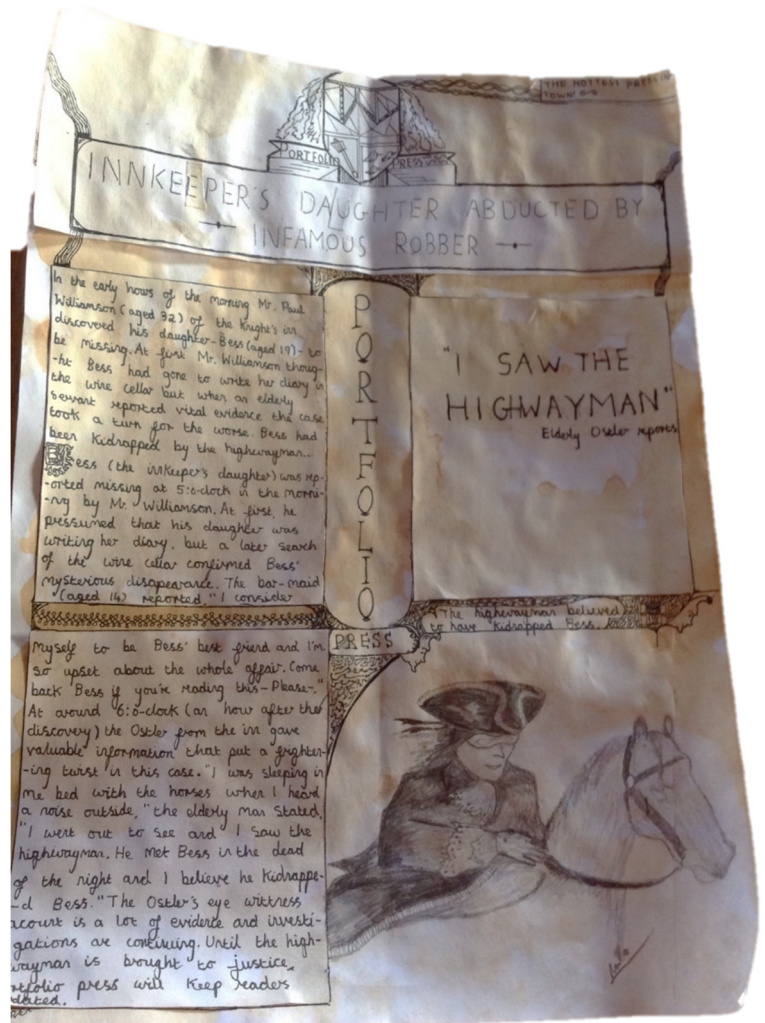 THE HOTTEST PRESS IN
TOWN
PORTFOLIO PRESS
INNKEEPER'S DAUGHTER ABDUCTED BY
INFAMOUS ROBBER
In the early hours of the morning Mr. Paul
Williamson (aged 32) of the Knight's inn
discovered his daughter-Bess (aged 19)- to
be missing. At first Mr. Williamson thoug-
-ht Bess had gone to write her diary in
the wine cellar but when an elderly
servant reported vital evidence the case
took a turn for the worse. Bess had
been kidnapped by the highwayman...
Bess (the innkeeper's daughter) was rep-
-orted missing at 5:o-clock in the morni-
-ng by Mr. Williamson. At first, he
pressumed that his daughter was
writing her diary, but a later search
of the wine cellar confirmed Bess'
mysterious disapearance. The bar-maid
(aged 14) reported, "I consider
myself to be Bess' best friend and I'm
so upset about the whole affair. Come
back Bess if you're reading this-Please-."
At around 6:o-clock (an hour after the
discovery) the Ostler from the inn gave
valuable information that put a frighten-
-ing twist in this case. "I was sleeping in
me bed with the horses when I heard
a noise outside," the elderly man stated,
"I went out to see and I saw the
highwayman. He met Bess in the dead
of the night and I believe he kidnappe-
-d Bess." The Ostler's eye wittness
acount is a lot of evidence and investi-
gations are continuing. Until the high-
wayman is brought to justice,
portfolio press will keep readers
PORTFOLIO
PRESS
"I SAW THE
HIGHWAYMAN"
Elderly Ostler reports
The highwayman believed
to have kidnapped Bess.